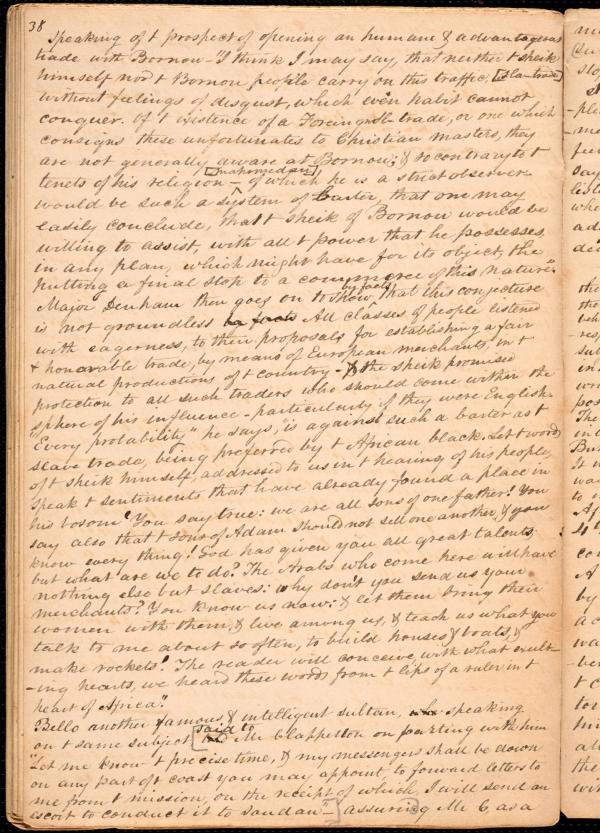 38
Speaking of t prospect of opening an humane & advantageous
trade with Bornou - "I think I may say, that neither t sheik
himself nor t Bornou people carry on this traffic, [sla-trade]
without feelings of disgust, which even habit cannot
conquer. Of t existence of a Foreign slave trade, or one which
consigns these unfortunates to Christian masters, they
are not generally aware at Bornou; & so contrary to t
[mahomedan]
tenets of his religion - of which he is a strict observer
would be such a system of barter, that one may
easily conclude, that t sheik of Bornou would be
willing to assist, with all t power that he possesses,
in any plan, which might have for its object, the
putting a final stop to a commerce of this nature".
by facts
Major Denham then goes on to show, that this conjecture
is not groundless by facts All classes of people listened
with eagerness, to their proposals for establishing a fair
& honorable trade, by means of European merchants, in t
natural productions of t country - & the sheik promised
protection to all such traders who should come within the
sphere of his influence - particularly if they were English.
"Every probability" he says, "is against such a barter as t
slave trade, being preferred by t African black. Let t words
of t sheik himself, addressed to us in t hearing of his people,
speak t sentiments that have already found a place in
his bosom! 'You say true: we are all sons of one father! You
say also that t sons of Adam should not sell one another, & you
know every thing! God has given you all great talents,
but what are we to do? The Arabs who come here will have
nothing else but slaves: why don't you send us your
merchants? You know us now: & let them bring their
women with them, & live among us, & teach us what you
talk to me about so often, to build houses & boats, &
make rockets!' The reader will conceive, with what exult-
-ing hearts, we heard these words from t lips of a ruler in t
heart of Africa".
Bello another famous & intelligent sultan, speaking
said to
on t same subject [ Mr Clapperton on parting with him
"Let me know t precise time, & my messengers shall be down
on any part of t coast you may appoint, to forward letters to
me from t mission, on the receipt of which, I will send an
escort to conduct it to Soudan" -] assuring Mr C as a